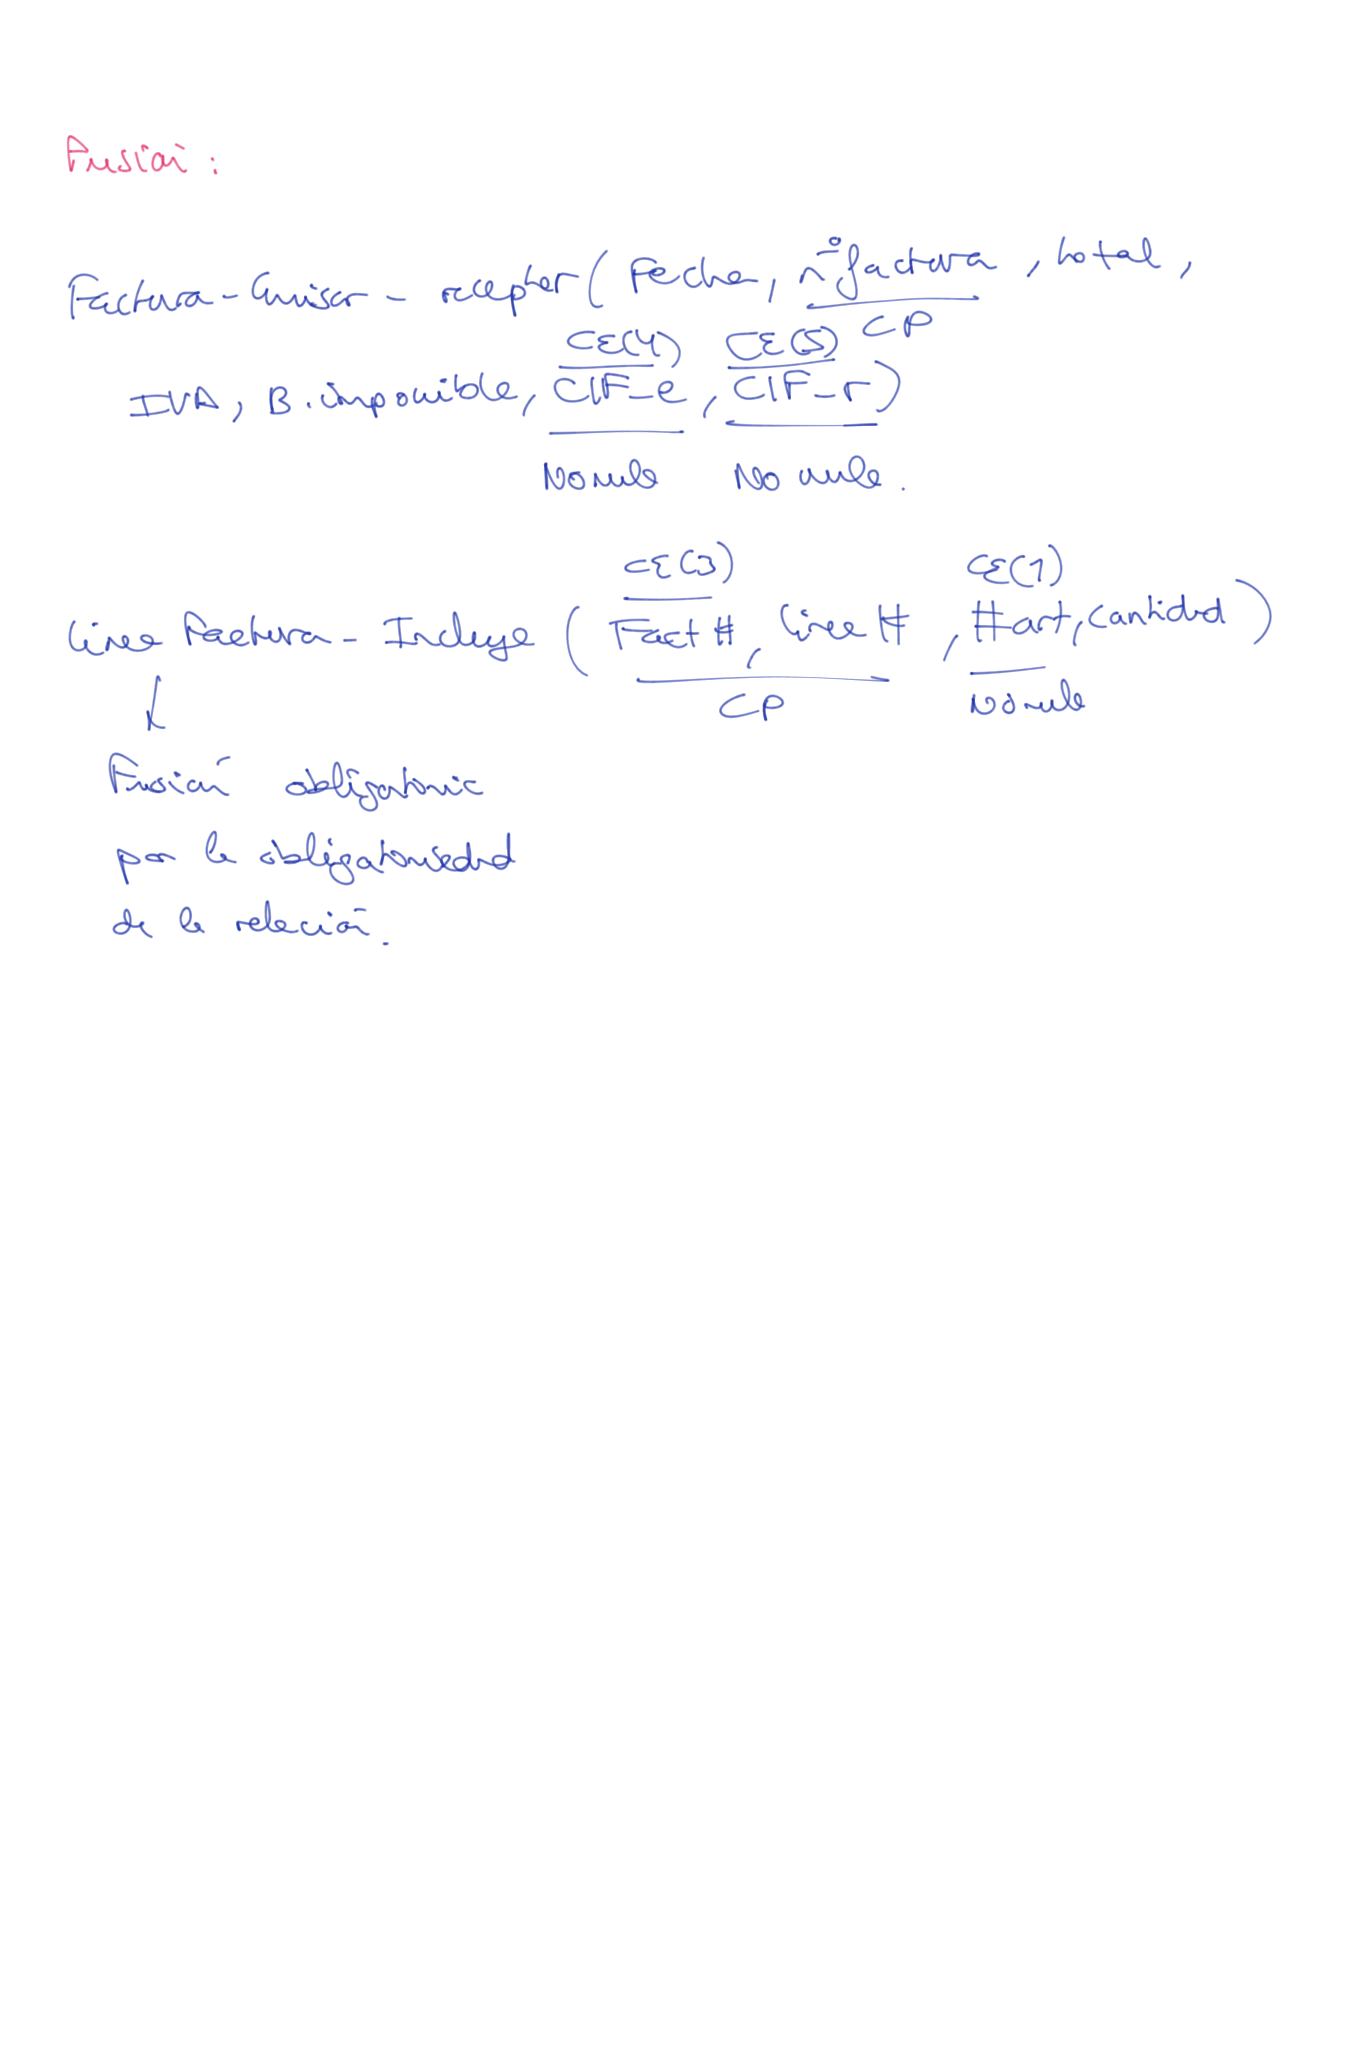 Fusión:
Factura-Emisor-receptor(Fecha, nºfactura, total,
CP
CE(4) CE(5)
IVA, B.imponible, CIF_e, CIF_r)
No nulo No nulo.
CE(3) CE(1)
Línea Factura-Incluye (Fact#, línea#, #art, cantidad)
CP No nulo
Fusión obligatoria
por la obligatoriedad
de la relación.